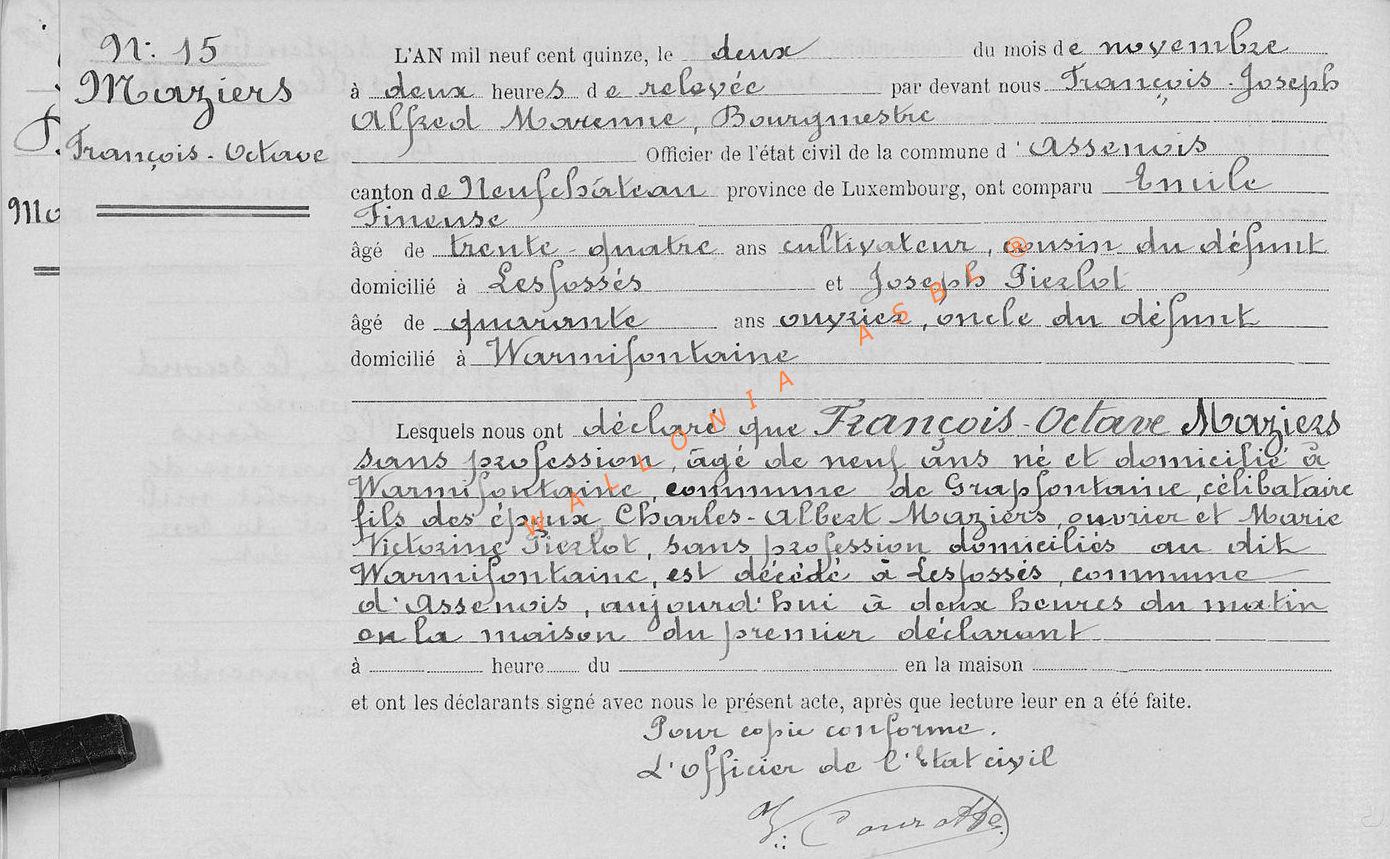 N: 15
Maziers
François-Octave
Mo
L'AN mil neuf cent quinze, le deux du mois de novembre
à deux heures de relevée par devant nous François-Joseph
Alfred Marenne, Bourgmestre
Officier de l'état civil de la commune d'Assenois
canton de Neufchâteau province de Luxembourg, ont comparu Emile
Fineuse
âgé de trente-quatre ans cultivateur, cousin du défunt
domicilié à Lesfossés et Joseph Pierlot
âgé de quarante ans ouvrier, oncle du défunt
domicilié à Warmifontaine
Lesquels nous ont déclaré que François-Octave Maziers
sans profession, âgé de neuf ans né et domicilié à
Warmifontaine, commune de Grapfontaine, célibataire
fils des époux Charles-Albert Maziers, ouvrier et Marie
Victorine Pierlot, sans profession domiciliés au dit
Warmifontaine, est décédé à Lesfossés, commune
d'Assenois, aujourd'hui à deux heures du matin
en la maison du premier déclarant
à heure du en la maison
et ont les déclarants signé avec nous le présent acte, après que lecture leur en a été faite.
Pour copie conforme.
L'Officier de l'Etat civil
WALLONIA ASBL ®